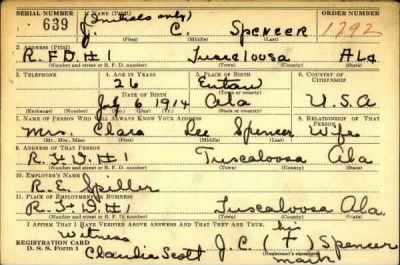 SERIAL NUMBER 1. NAME (Print) (Initials only) ORDER NUMBER
639 J. C. SPENCER 1792
(First) (Middle) (Last)
2. ADDRESS (Print)
R.F.D.# 1 Tuscaloosa Ala
(Number and street or R. F. D. number) (Town) (County) (State)
3. TELEPHONE 4. AGE IN YEARS 5. PLACE OF BIRTH 6. COUNTRY OF CITIZENSHIP
26 Eutaw
DATE OF BIRTH (Town or county)
July 6 1914 Ala U.S.A
(Exchange) (Number) (Mo.) (Day) (Yr.) (State or country)
7. NAME OF PERSON WHO WILL ALWAYS KNOW YOUR ADDRESS 8. RELATIONSHIP OF THAT PERSON
Mrs. Clara Lee Spencer Wife
(Mr., Mrs., Miss) (First) (Middle) (Last)
9. ADDRESS OF THAT PERSON
R.F.D# 1 Tuscaloosa Ala
(Number and street or R. F. D. number) (Town) (County) (State)
10. EMPLOYER'S NAME
R.E. Spiller
11. PLACE OF EMPLOYMENT OR BUSINESS
R.F.D# 1 Tuscaloosa Ala.
(Number and street or R. F. D. number) (Town) (County) (State)
I AFFIRM THAT I HAVE VERIFIED ABOVE ANSWERS AND THAT THEY ARE TRUE.
Witness his
REGISTRATION CARD Claudia Scott J.C. (+) Spencer
D. S. S. Form 1 (Registrant's signature)
mark